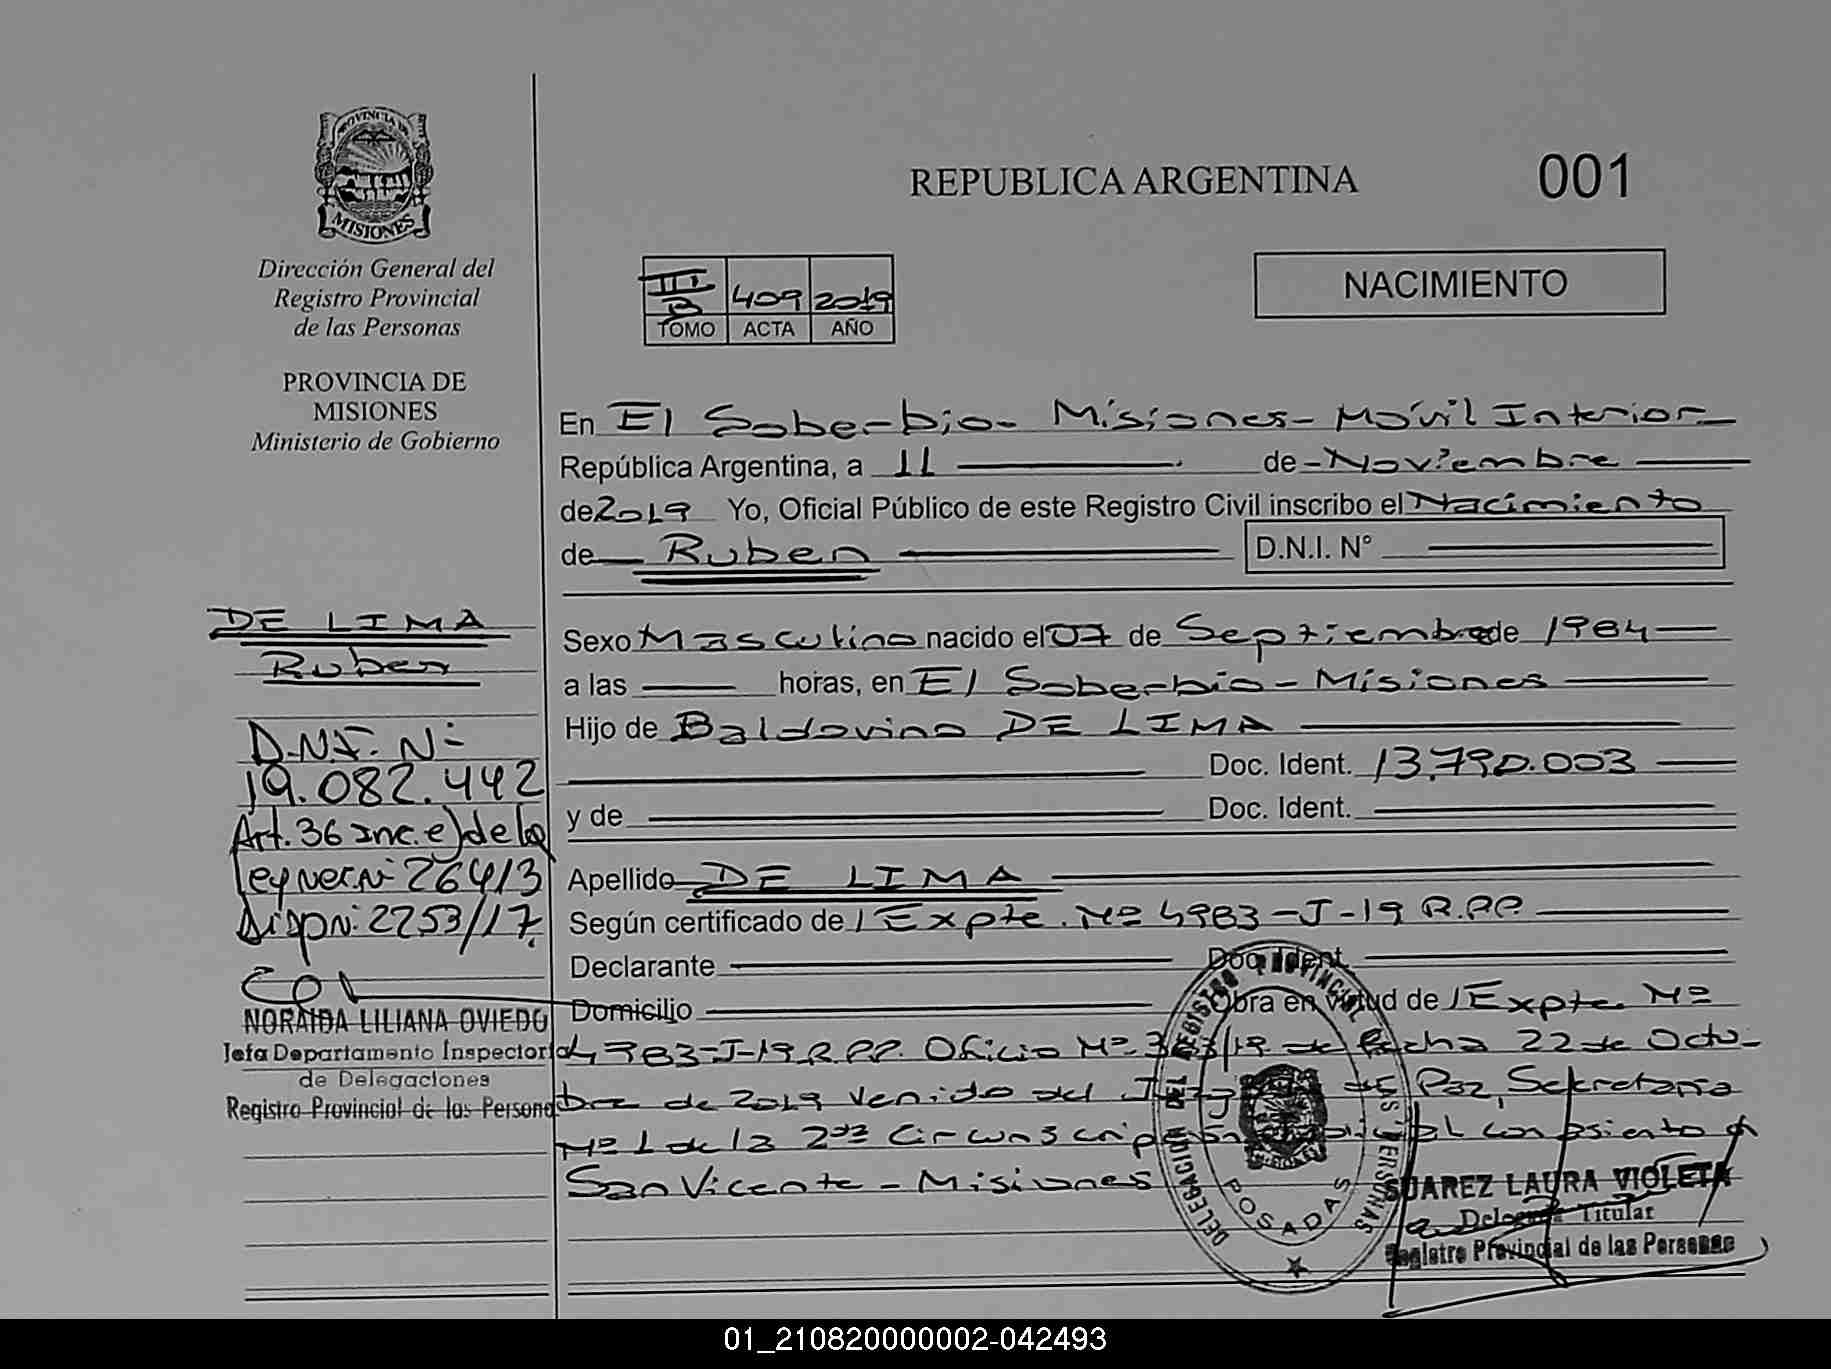 PROVINCIA DE
MISIONES
Dirección General del
Registro Provincial
de las Personas
PROVINCIA DE
MISIONES
Ministerio de Gobierno
DE LIMA
Ruben
D.N.I. Nº
19.082.442
Art. 36 inc. e) de la
Ley 26413
Disp Nº 2253/17.
NORAIDA LILIANA OVIEDO
Jefa Departamento Inspectoria
de Delegaciones
Registro Provincial de las Persona
REPUBLICA ARGENTINA
001
NACIMIENTO
III B 409 2019
TOMO ACTA AÑO
En El Soberbio - Misiones - Móvil Interior
República Argentina, a 11 de Noviembre
de 2019 Yo, Oficial Público de este Registro Civil inscribo el Nacimiento
de Ruben D.N.I. N°
Sexo Masculino nacido el 07 de Septiembre de 1984
a las horas, en El Soberbio - Misiones
Hijo de Baldovino DE LIMA
Doc. Ident. 13.790.003
y de Doc. Ident.
Apellido DE LIMA
Según certificado de / Expte. Nº 4983-J-19 R.P.P.
Declarante Doc. Ident.
Domicilio Obra en virtud de / Expte. Nº
4983-J-19 R.P.P. Oficio Nº /19 de fecha 22 de Octu-
bre de 2019 venido del de Paz, Secretaria
Nº 1 de la 2da Circunscripción con asiento
San Vicente - Misiones
DELEGACION DEL REGISTRO PROVINCIAL DE LAS PERSONAS
MISIONES
POSADAS
SUAREZ LAURA VIOLETA
Delegada Titular
Registro Provincial de las Personas
01_210820000002-042493